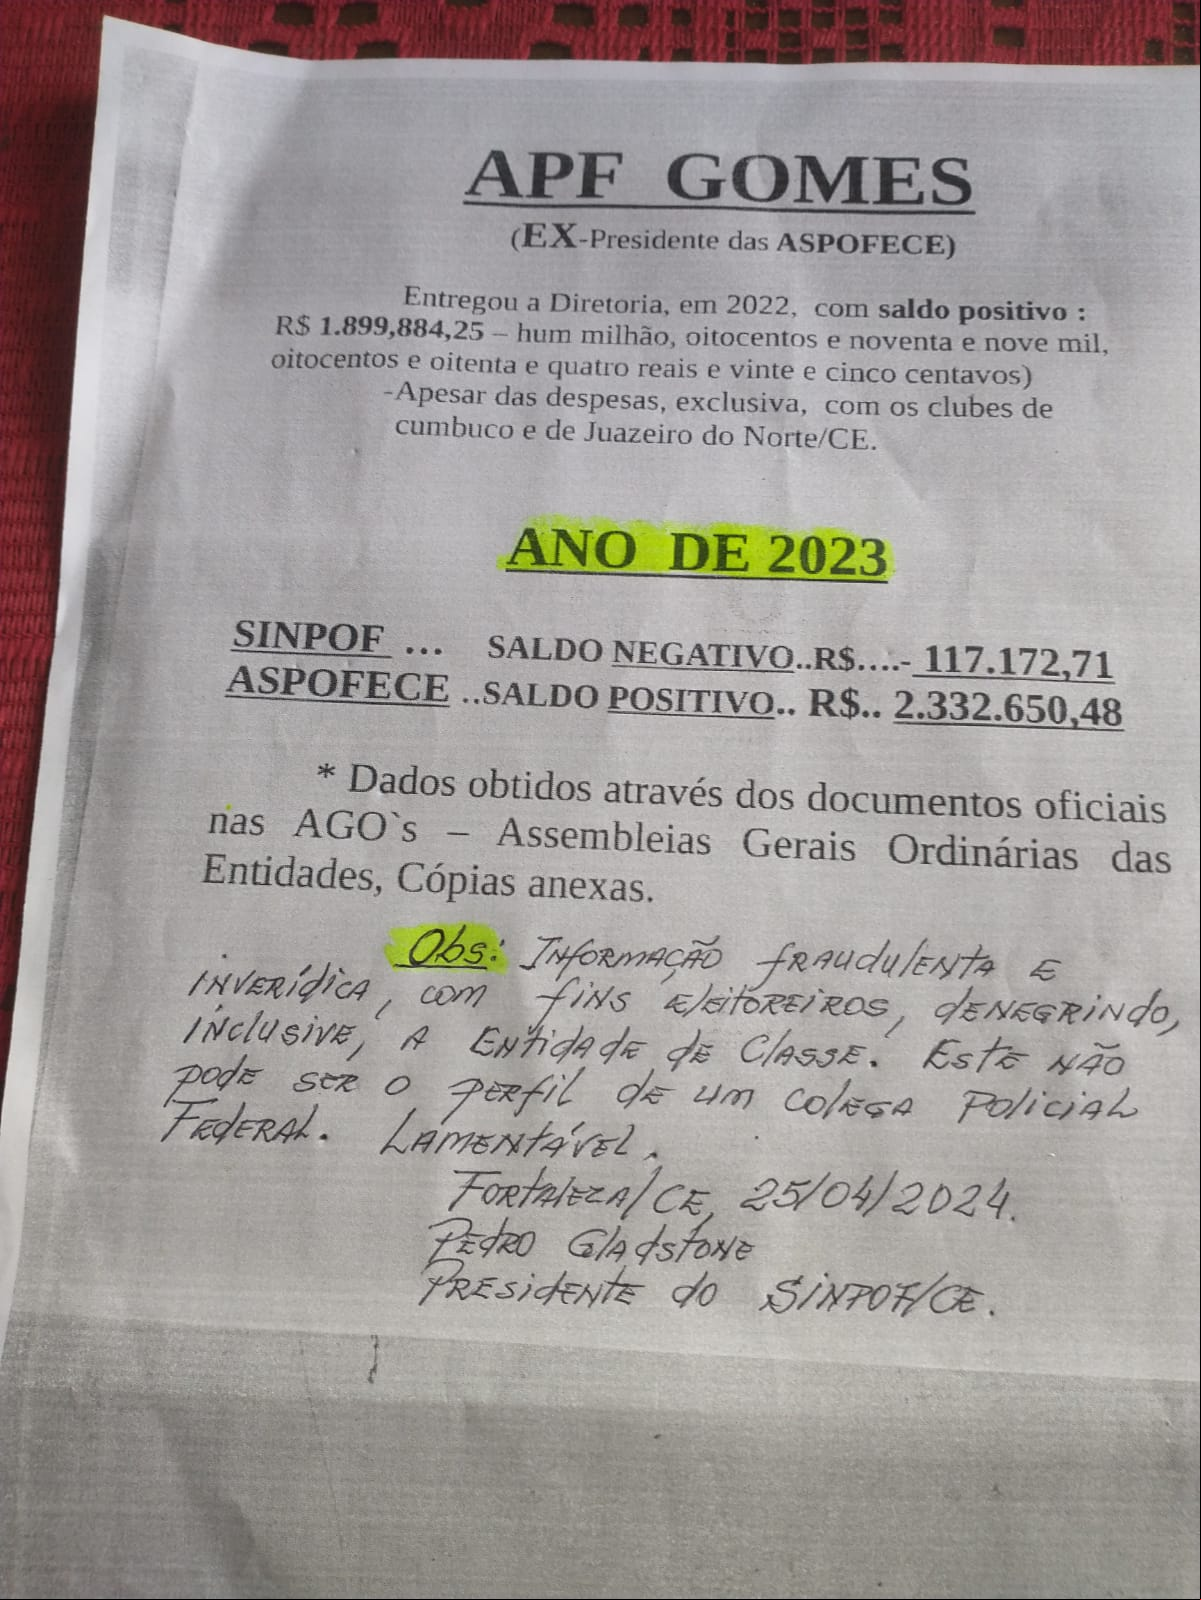 APF GOMES
(EX-Presidente das ASPOFECE)
Entregou a Diretoria, em 2022, com saldo positivo :
R$ 1.899,884,25 – hum milhão, oitocentos e noventa e nove mil,
oitocentos e oitenta e quatro reais e vinte e cinco centavos)
-Apesar das despesas, exclusiva, com os clubes de
cumbuco e de Juazeiro do Norte/CE.
ANO DE 2023
SINPOF ... SALDO NEGATIVO..R$....- 117.172,71
ASPOFECE ..SALDO POSITIVO.. R$.. 2.332.650,48
* Dados obtidos através dos documentos oficiais
nas AGO`s – Assembleias Gerais Ordinárias das
Entidades, Cópias anexas.
Obs: Informação fraudulenta e
inverídica, com fins eleitoreiros, denegrindo,
inclusive, a Entidade de Classe. Este não
pode ser o perfil de um colega Policial
Federal. Lamentável.
Fortaleza/CE, 25/04/2024.
Pedro Gladstone
Presidente do SINPOF/CE.